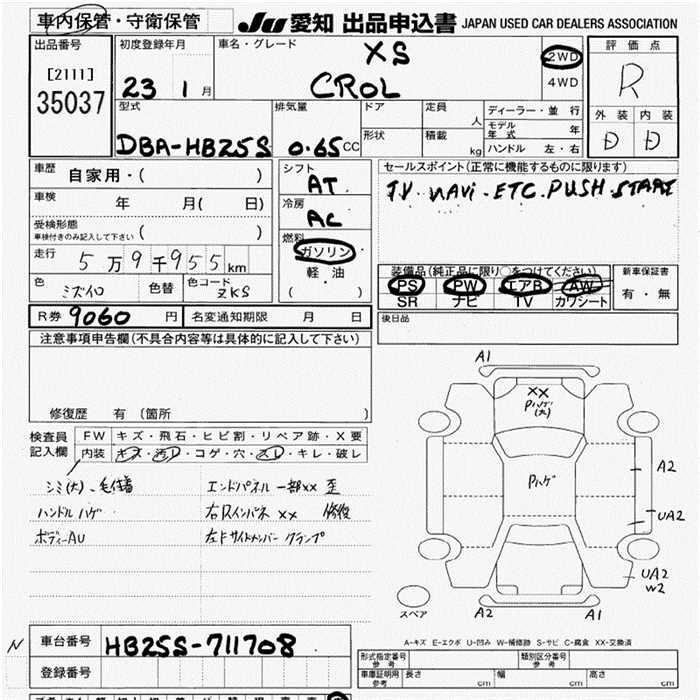 車内保管・守衛保管
JU 愛知 出品申込書 JAPAN USED CAR DEALERS ASSOCIATION
出品番号
[2111]
35037
初度登録年月
23 1月
車名・グレード
XS
CROL
2WD
4WD
評価点
R
外装 内装
D D
型式
DBA-HB25S
排気量
0.65CC
ドア
形状
定員 人
積載 kg
ディーラー・並行
モデル年式 年
ハンドル 左・右
車歴 自家用・( )
車検 年 月( 日)
受検形態
車検付きのみ記入して下さい ( )
走行 5万9千955km
色 ミズイロ 色替 色コード ZKS
シフト
AT
冷房
AC
燃料
ガソリン
軽・油
( )
セールスポイント(正常に機能するものに限ります)
TV. NAVi. ETC. PUSH START
装備品(純正品に限り○をつけてください)
PS PW エアB AW
SR ナビ TV カワシート
新車保証書
有・無
R券 9060 円 名変通知期限 月 日
後日品
注意事項申告欄(不具合内容等は具体的に記入して下さい)
修復歴 有(箇所 )
検査員記入欄
FW キズ・飛石・ヒビ割・リペア跡・X要
内装 キズ・汚レ・コゲ・穴・スレ・キレ・破レ
シミ(大)、毛付着 エンドパネル一部XX 歪
ハンドルハゲ 右Rインパネ XX 修復
ボディーAU 左Fサイドメンバー クランプ
A1
XX
Pハゲ
(大)
Pハゲ
A2
UA2
UA2
W2
スペア
A2 A1
A-キズ E-エクボ U-凹み W-補修跡 S-サビ C-腐食 XX-交換済
N
車台番号 HB25S-711708
登録番号
形式指定番号 参考
類別区分番号 参考
車庫証明用 参考 長さ cm 幅 cm 高さ cm